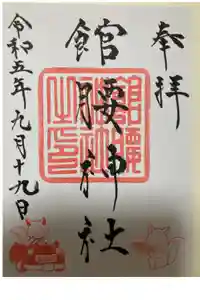 奉拝
館腰神社
館腰
神社
之印
令和五年九月十九日